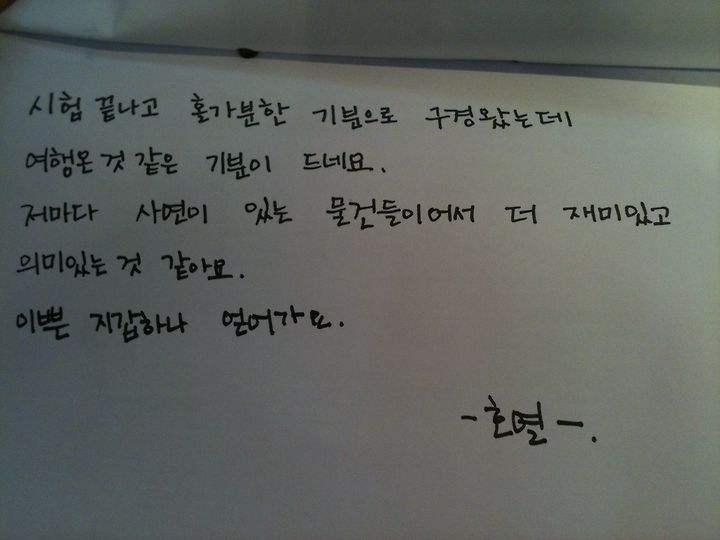 시험 끝나고 홀가분한 기분으로 구경왔는데
여행온 것 같은 기분이 드네요.
저마다 사연이 있는 물건들이어서 더 재미있고
의미있는 것 같아요.
이쁜 지갑하나 얻어가요.
-호열-.